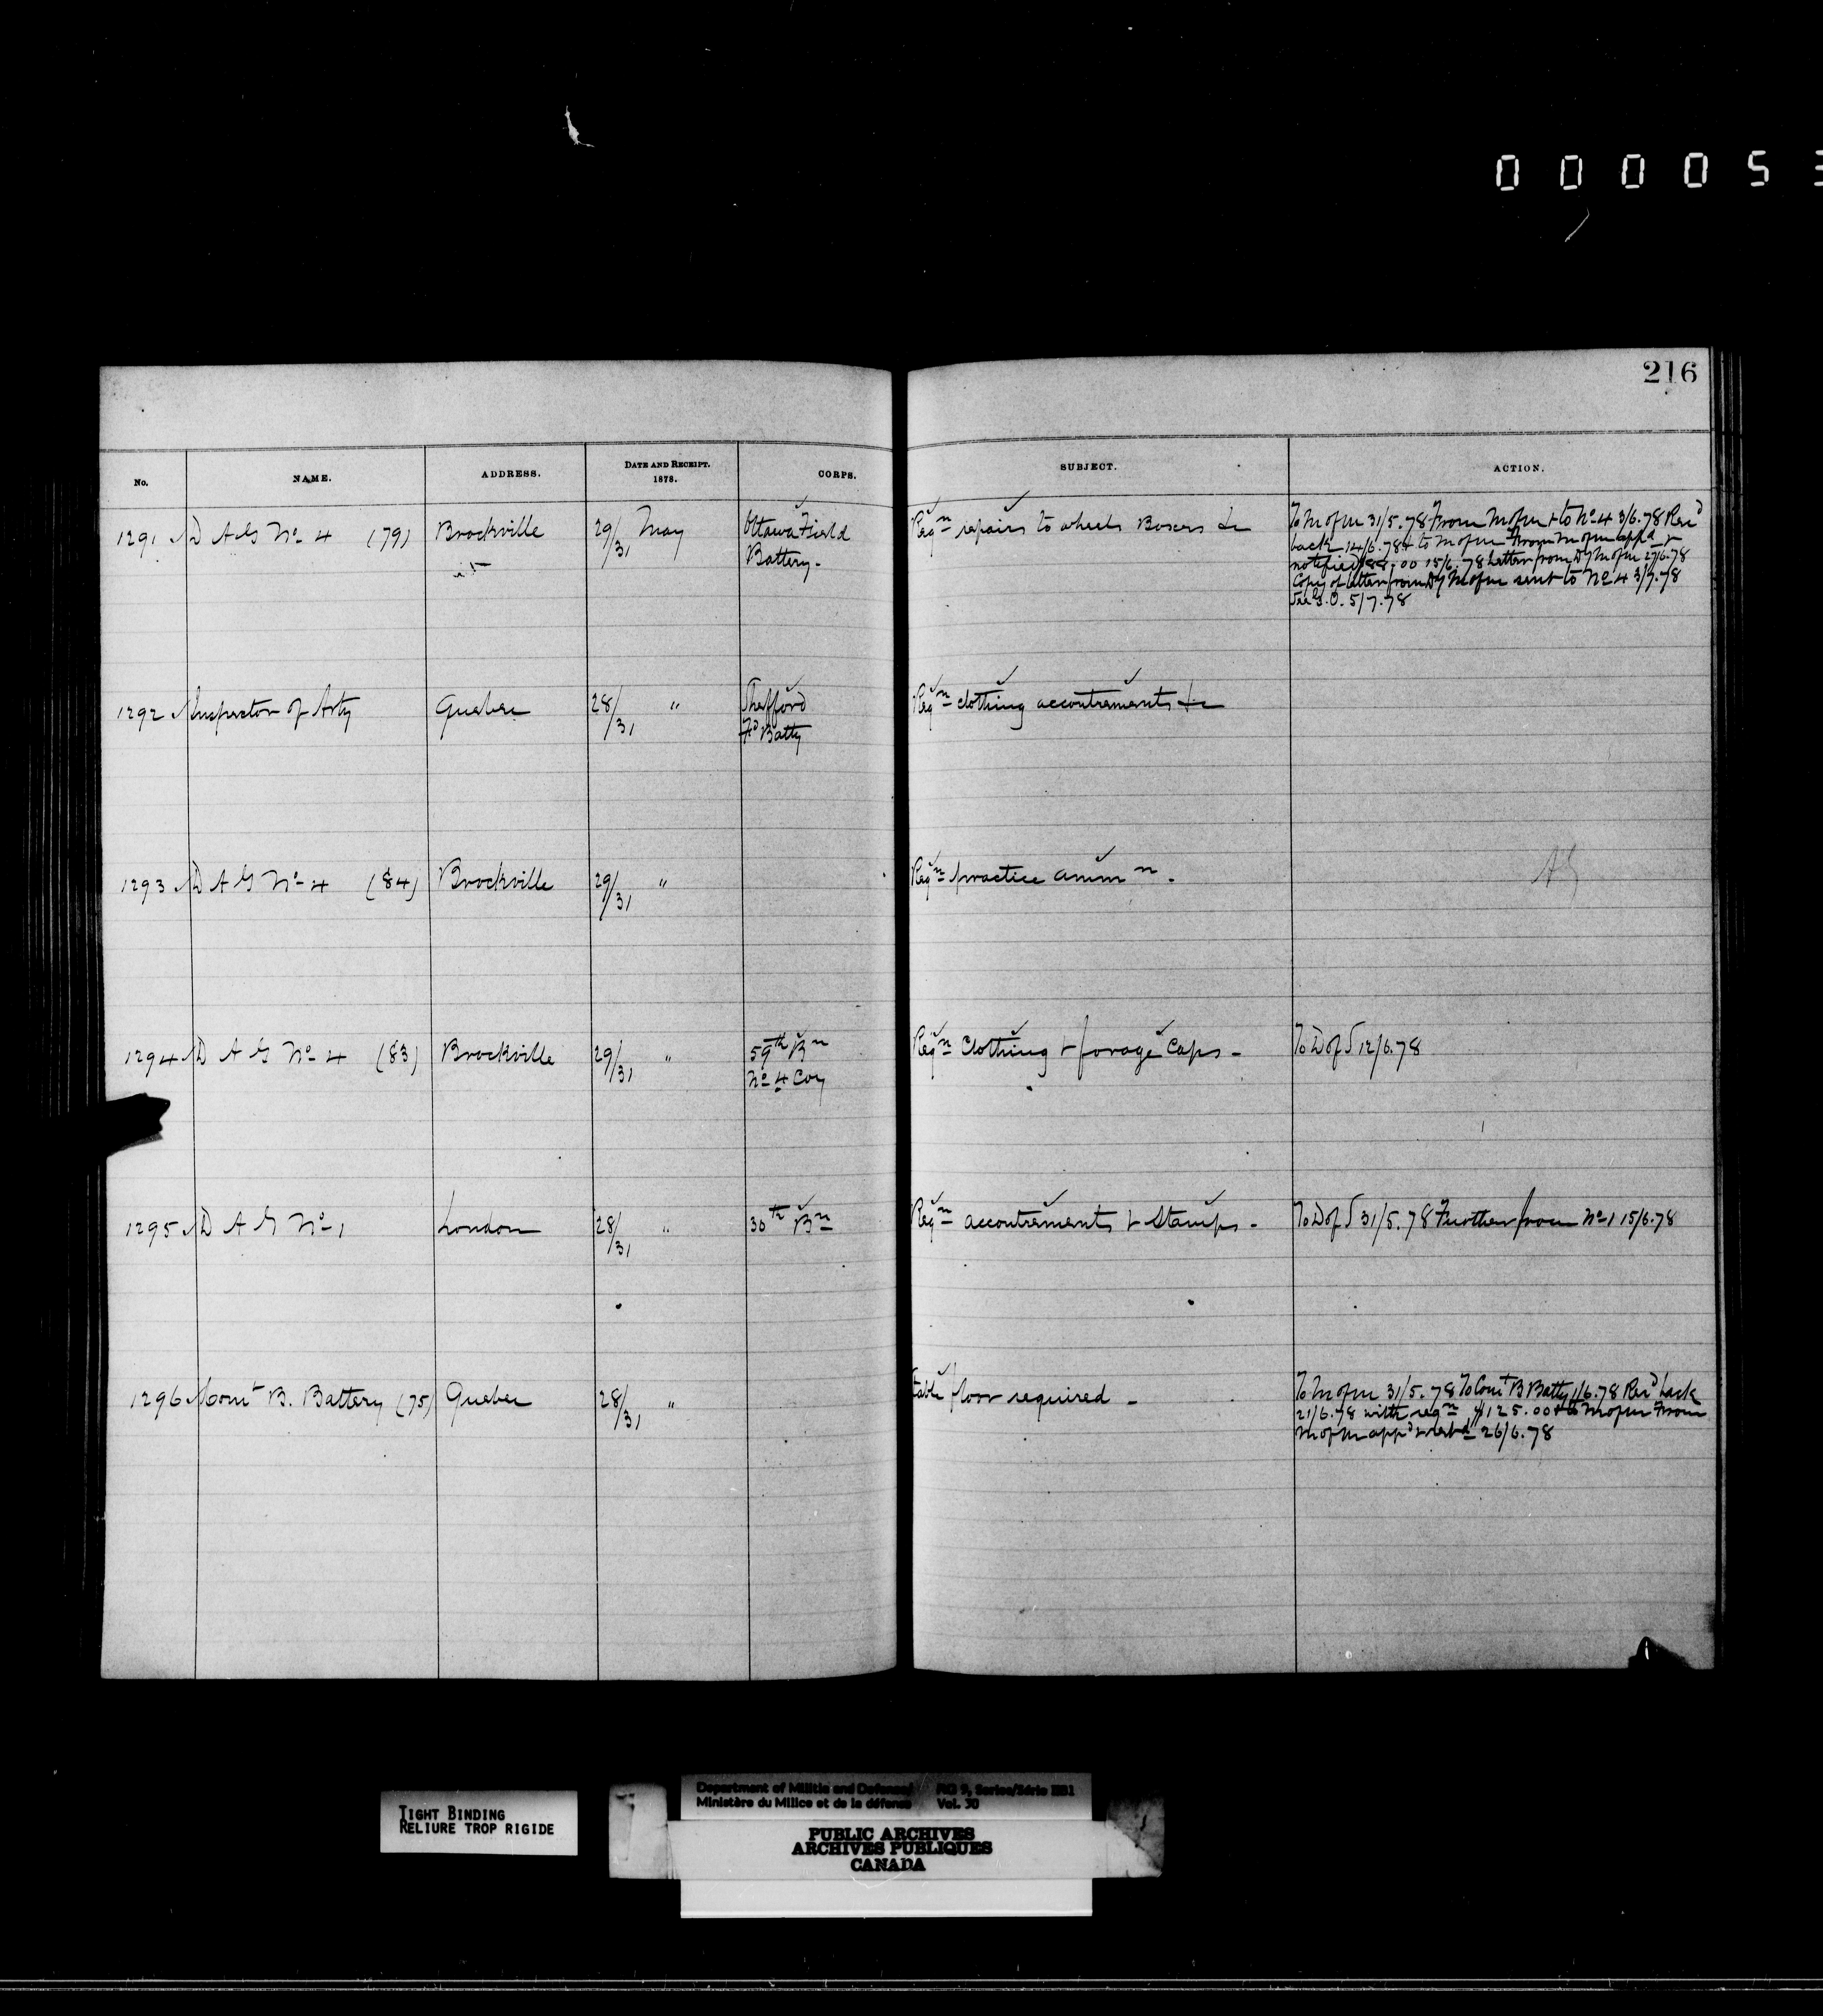 000053
216
No. NAME. ADDRESS. DATE AND RECEIPT. 1878. CORPS. SUBJECT. ACTION.
1291 D A G No 4 (79) Brockville 29/31 May Ottawa Field Battery. Reqn repairs to wheels Boxes &c
To M of M 31/5.78 From M of M & to No 4 3/6.78 Recd
back 14/6.78 & to M of M From M of M appd &
notified 15/6.78 Letter from Dy M of M 27/6.78
Copy of letter from Dy M of M sent to No 4 3/7.78
See G.O. 5/7.78
1292 Inspector of Arty Quebec 28/31 " Shefford Fd Batty Reqn clothing accoutrements &c
1293 D A G No 4 (84) Brockville 29/31 " Reqn practice ammn. AG
1294 D A G No 4 (83) Brockville 29/31 " 59th Bn No 4 Coy Reqn Clothing & forage Caps - To D of S 12/6.78
1295 D A G No 1 London 28/31 " 30th Bn Reqn accoutrements & Stamps - To D of S 31/5.78 Further from No 1 15/6.78
1296 Comt B. Battery (75) Quebec 28/31 " Stable floor required -
To M of M 31/5.78 To Comt B Batty 1/6.78 Recd back
21/6.78 with reqn $125.00 & to M of M From
M of M appd & retd 26/6.78
TIGHT BINDING
RELIURE TROP RIGIDE
Department of Militia and Defence/ RG 9, Series/Série IIB1
Ministère du Milice et de la défense Vol. 30
PUBLIC ARCHIVES
ARCHIVES PUBLIQUES
CANADA